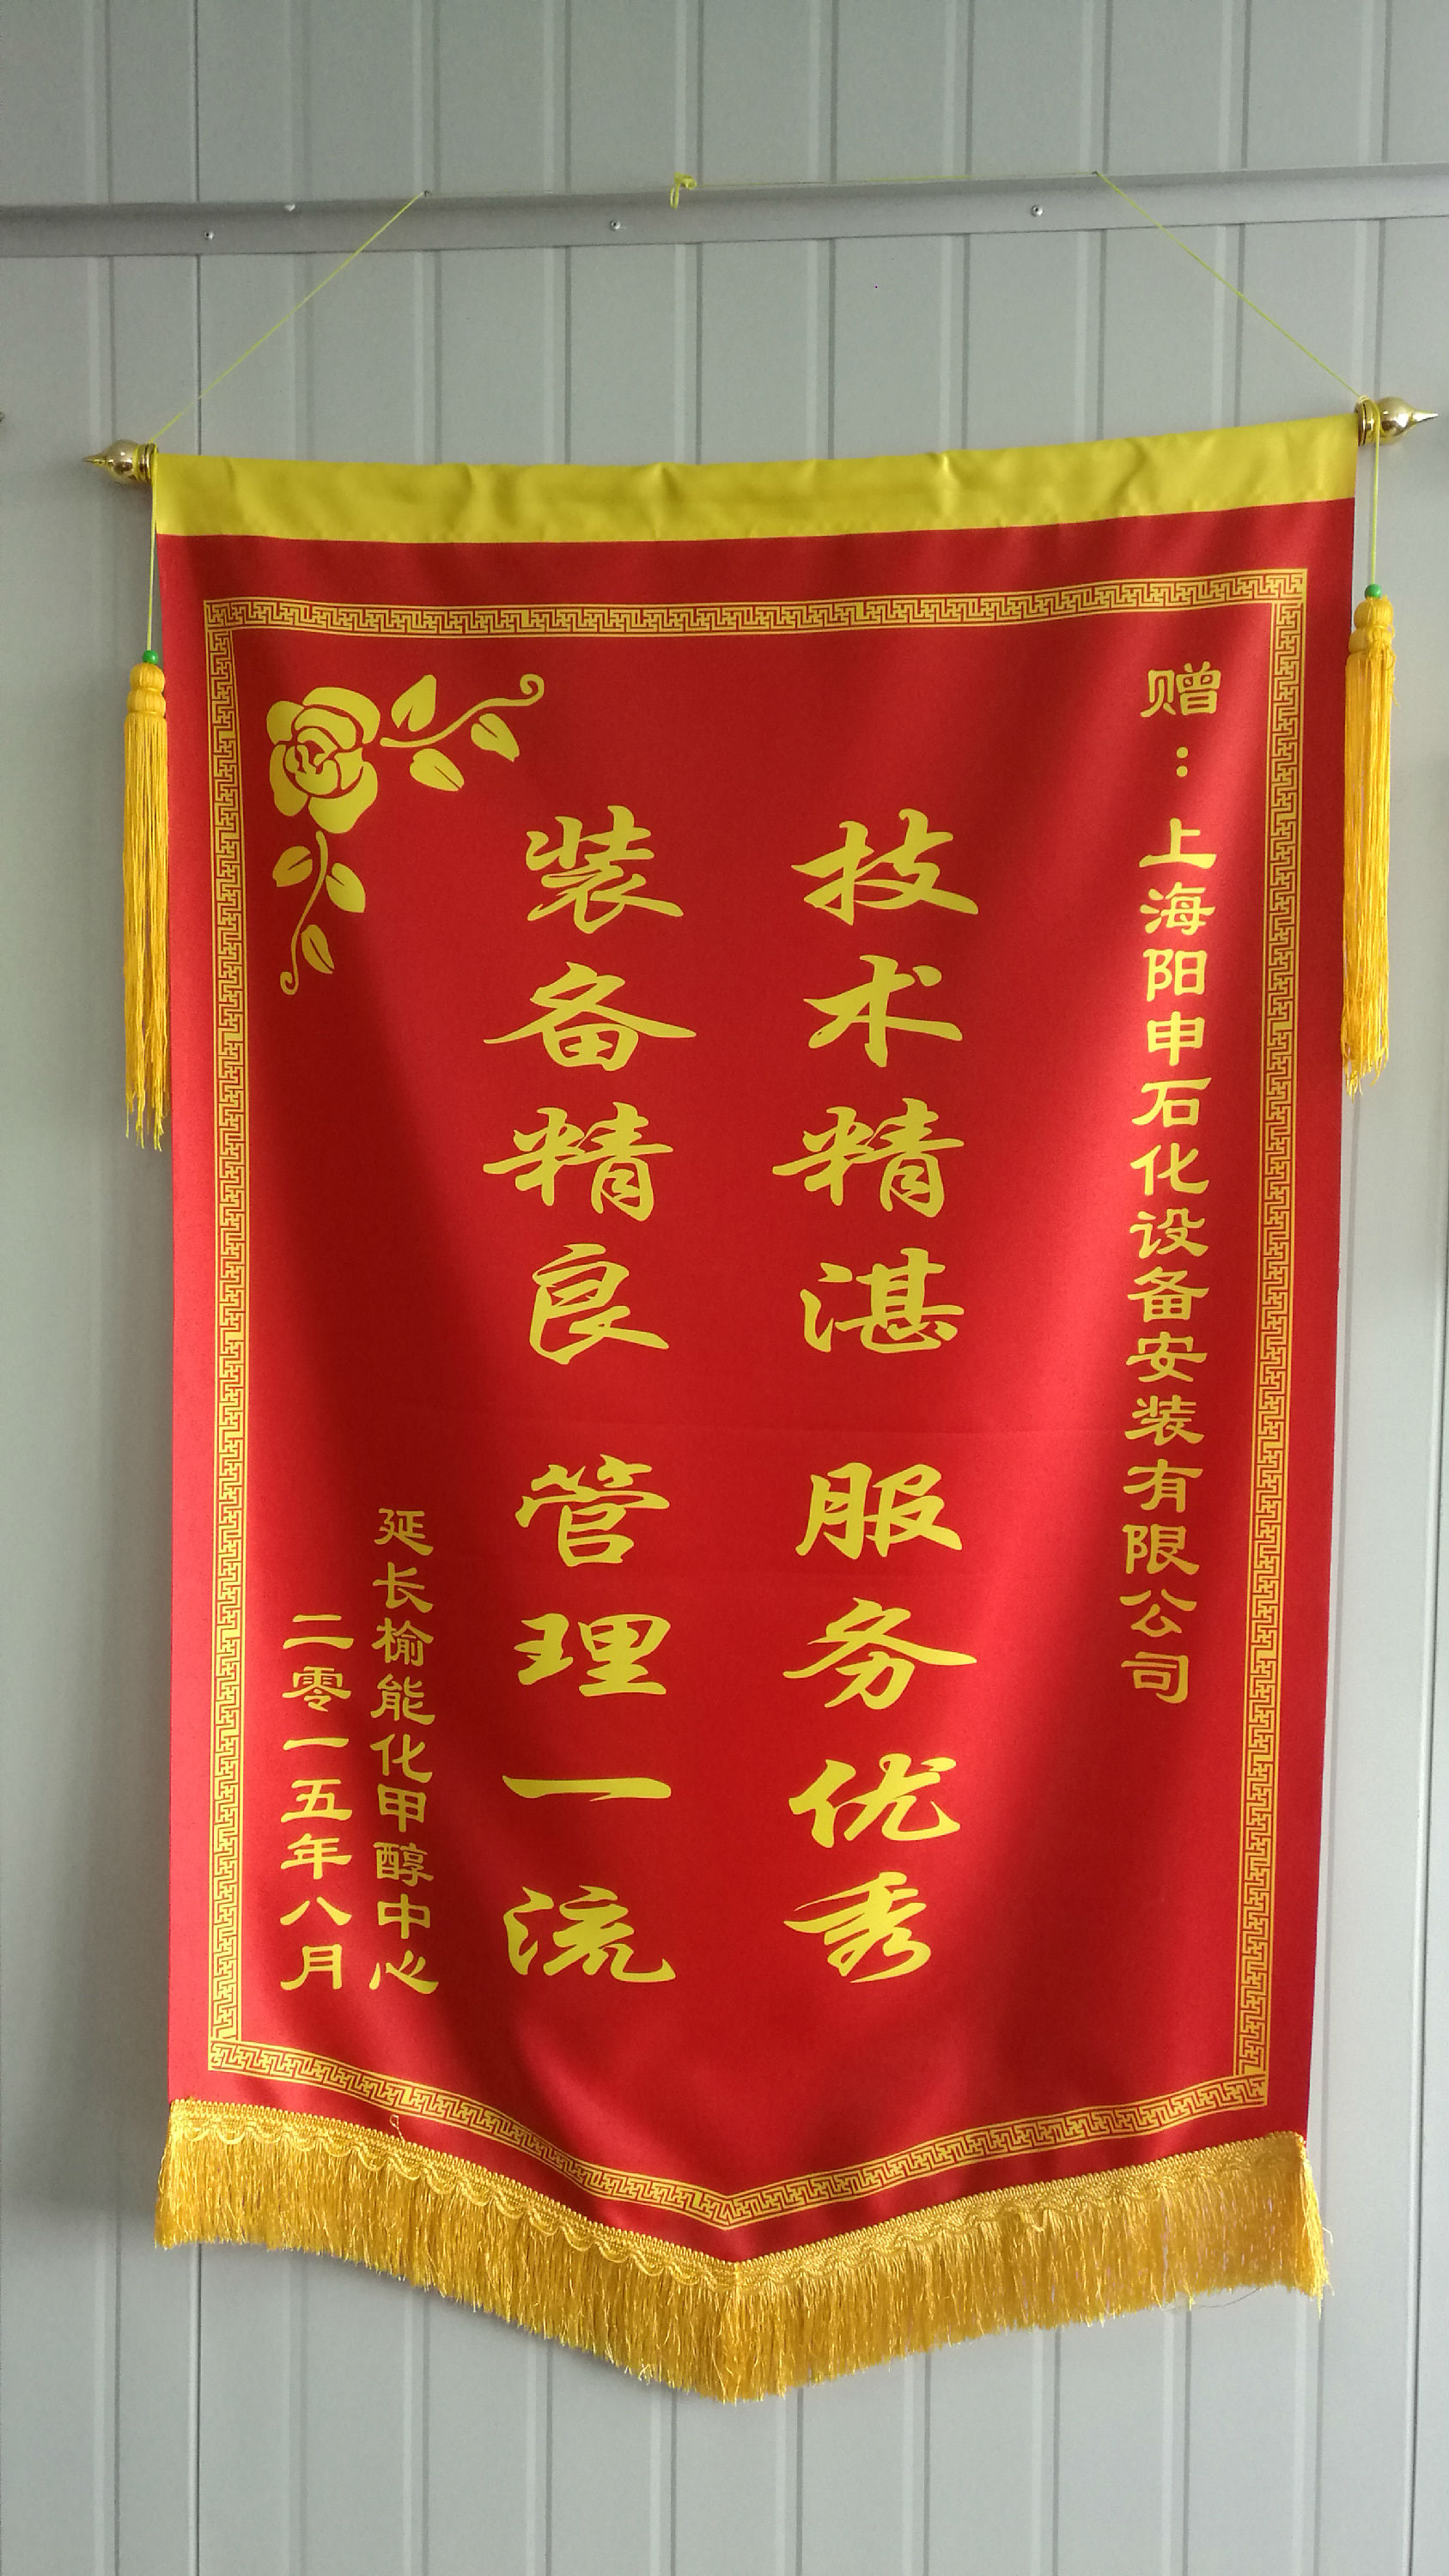 赠：上海阳申石化设备安装有限公司
技术精湛 服务优秀
装备精良 管理一流
延长榆能化甲醇中心
二零一五年八月